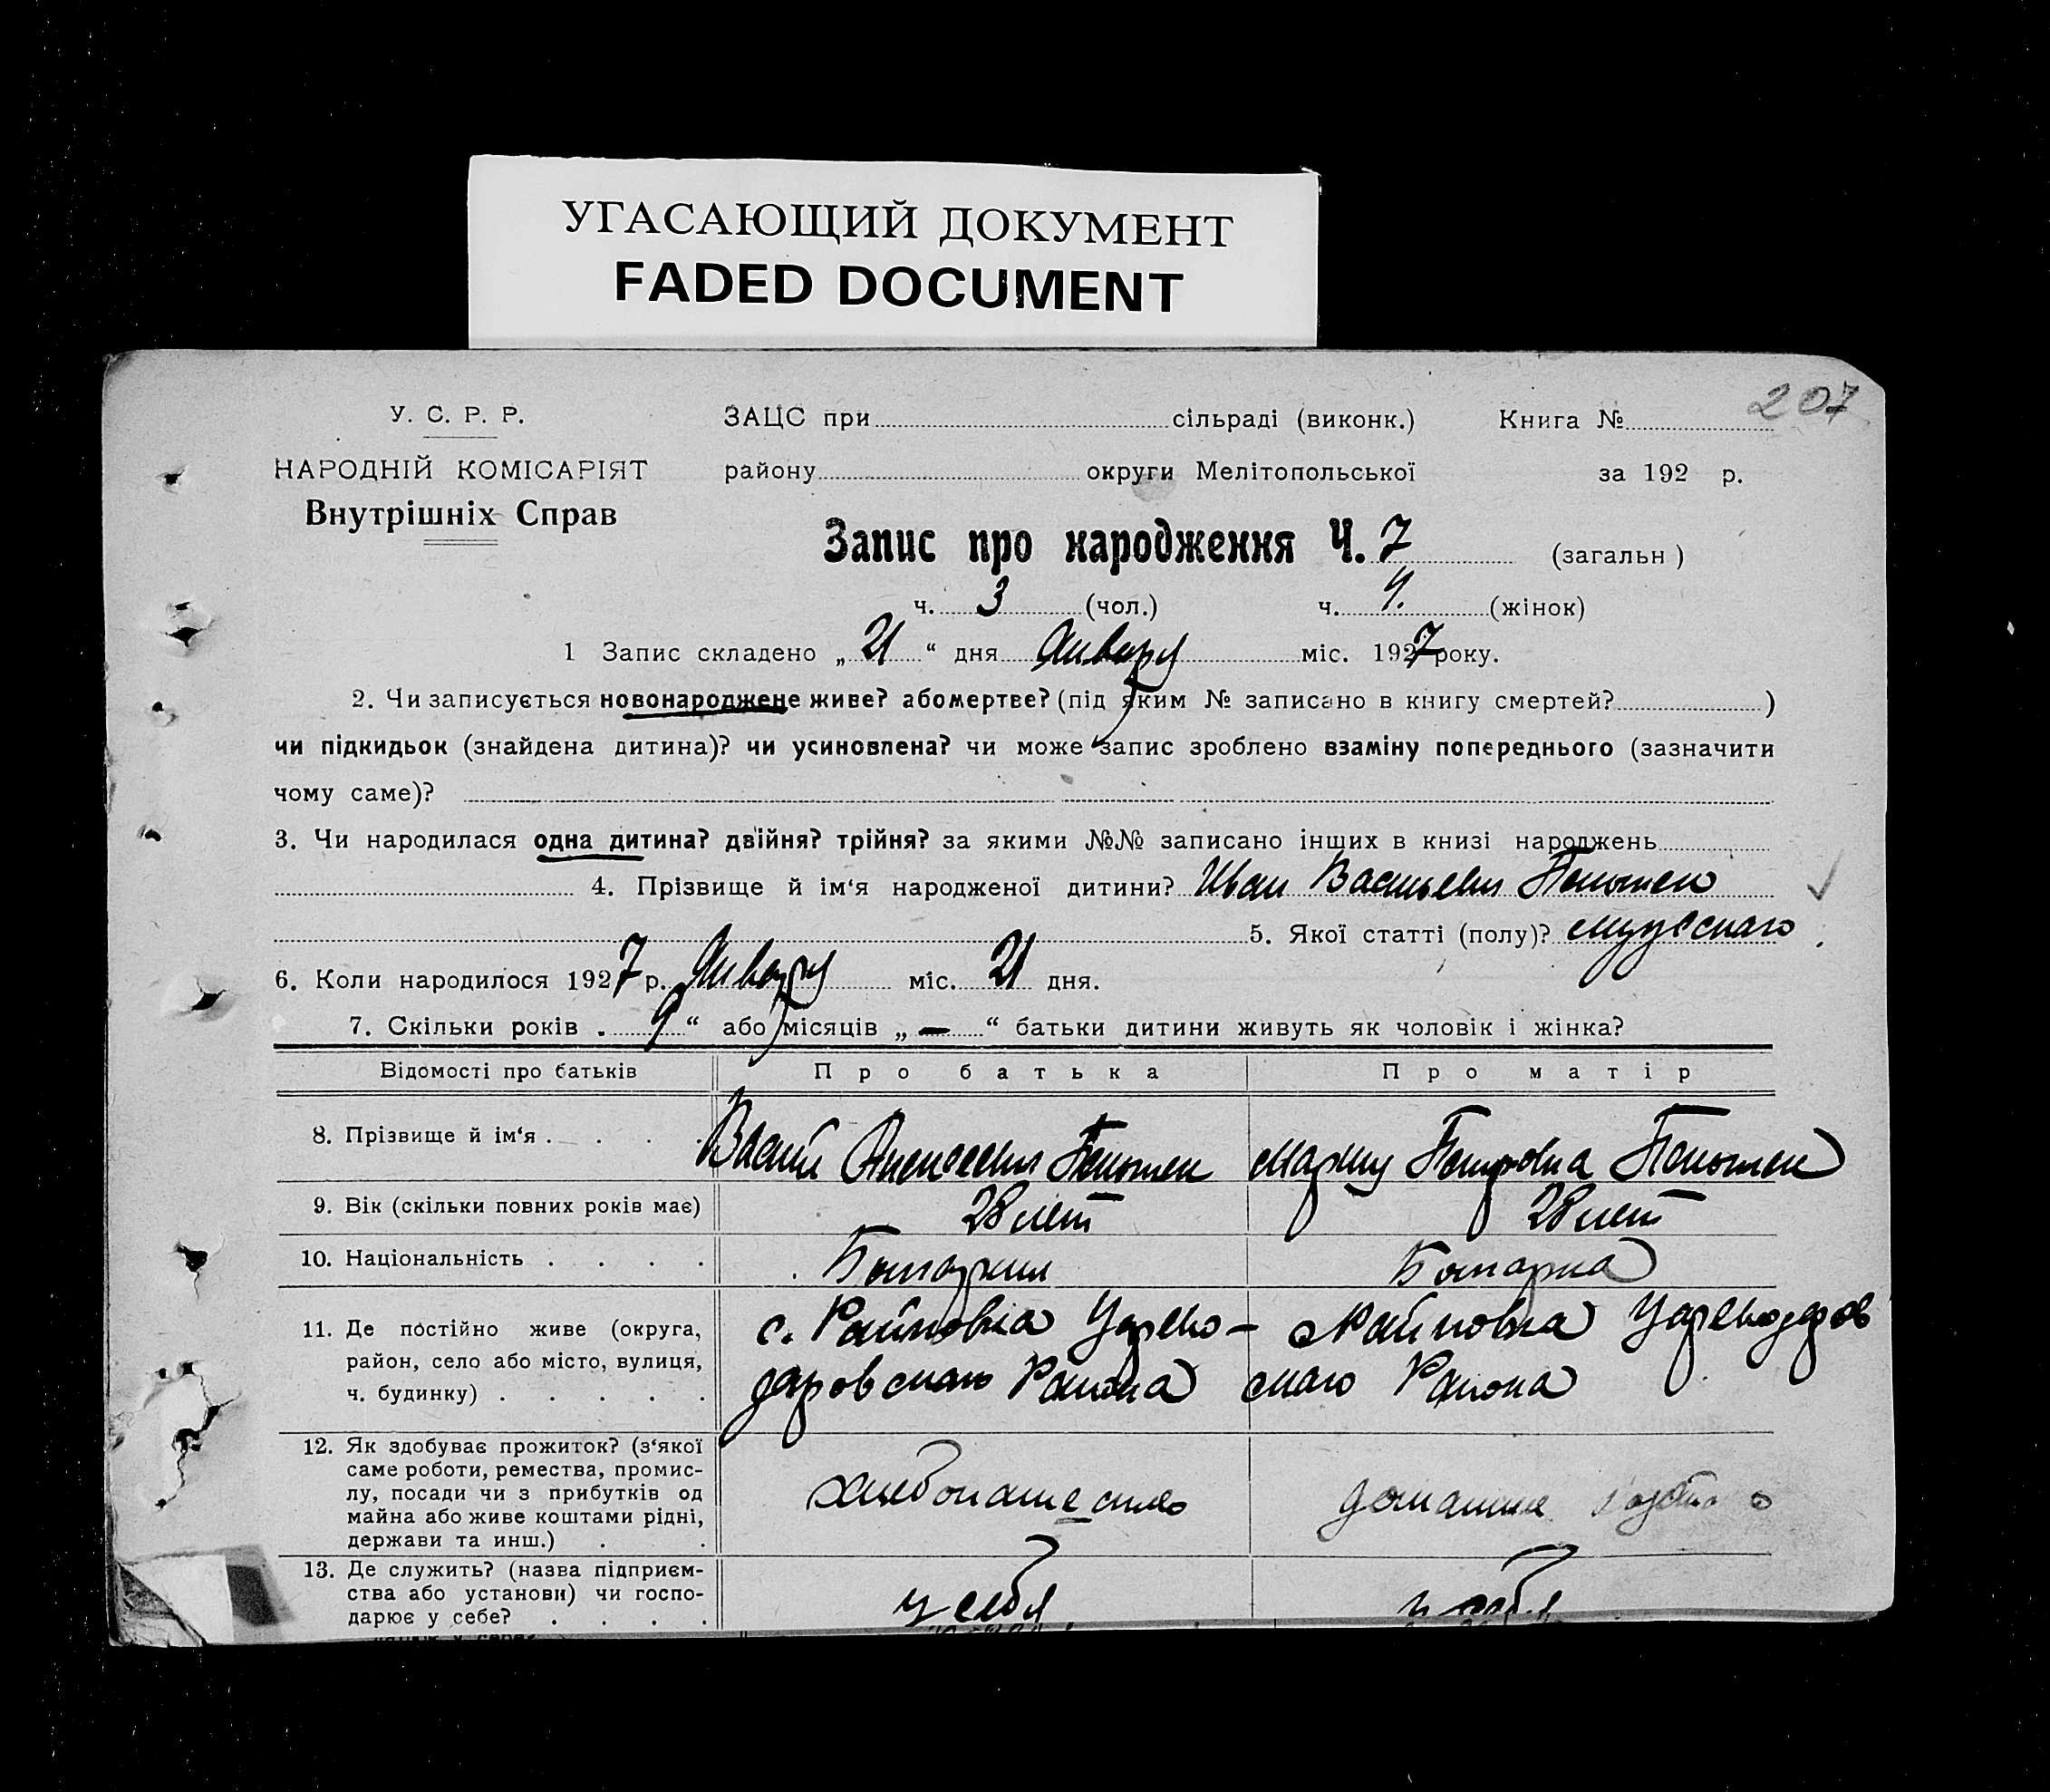 УГАСАЮЩИЙ ДОКУМЕНТ
FADED DOCUMENT
207
У. С. Р. Р.
ЗАЦС при сільраді (виконк.) Книга №
НАРОДНІЙ КОМІСАРІЯТ
району округи Мелітопольської за 192 р.
Внутрішніх Справ
Запис про народження Ч. 7 (загальн )
ч. 3 (чол.) ч. 4. (жінок)
1 Запис складено „ 21 “ дня Января міс. 1927 року.
2. Чи записується новонароджене живе? або мертве? (під яким № записано в книгу смертей? )
чи підкидьок (знайдена дитина)? чи усиновлена? чи може запис зроблено взаміну попереднього (зазначити
чому саме)?
3. Чи народилася одна дитина? двійня? трійня? за якими №№ записано інших в книзі народжень
4. Прізвище й ім‘я народженої дитини? Иван Васильевич
5. Якої статті (полу)? мужскаго
6. Коли народилося 1927 р. Января міс. 21 дня.
7. Скільки років „ 9 “ або місяців „ — “ батьки дитини живуть як чоловік і жінка?
Відомості про батьків Про батька Про матір
8. Прізвище й ім‘я . . . . Васил Алексеевич Мария Петровна
9. Вік (скільки повних років має) 28 лет 28 лет
10. Національність . . . . Болгарин Болгарка
11. Де постійно живе (округа, с. Райновка Царево- Райновка Цареводаров
район, село або місто, вулиця, даровскаго Района скаго Района
ч. будинку) . . . . .
12. Як здобуває прожиток? (з‘якої
саме роботи, ремества, промис-
лу, посади чи з прибутків од хлебопашество домашне
майна або живе коштами рідні,
держави та инш.) . .
13. Де служить? (назва підприєм-
ства або установи) чи госпо- у себя у себя
дарює у себе? . . . .